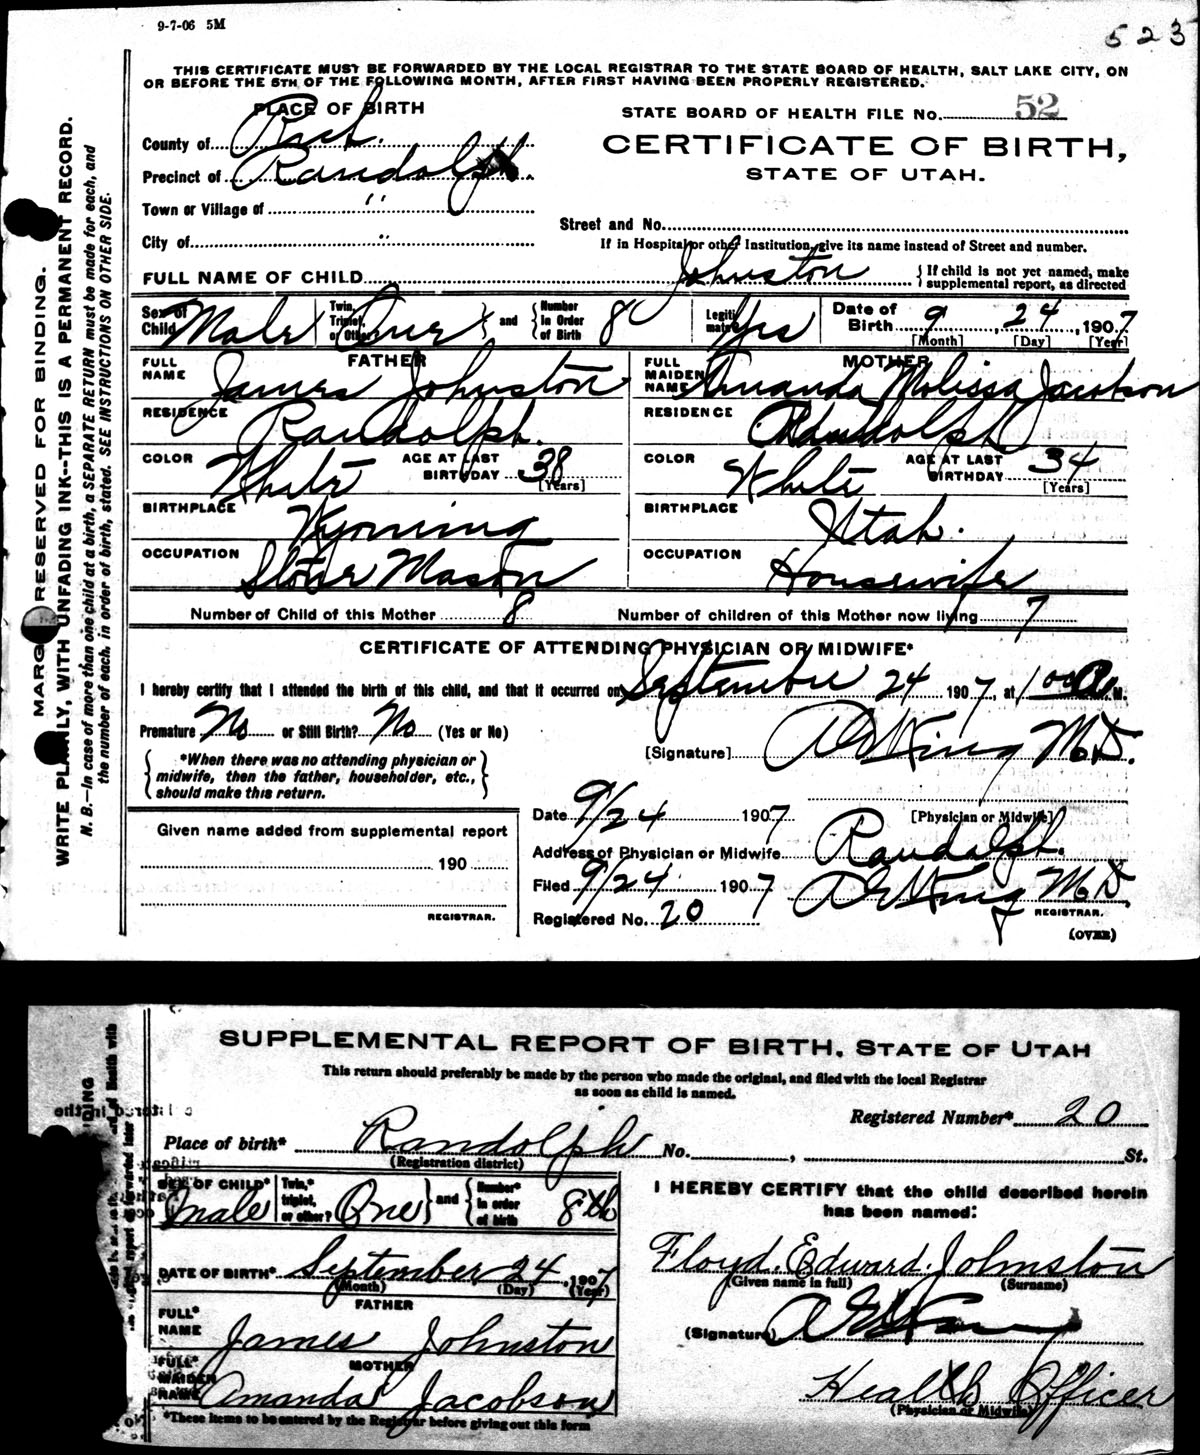 9-7-06 5M
523
THIS CERTIFICATE MUST BE FORWARDED BY THE LOCAL REGISTRAR TO THE STATE BOARD OF HEALTH, SALT LAKE CITY, ON
OR BEFORE THE 5TH OF THE FOLLOWING MONTH, AFTER FIRST HAVING BEEN PROPERLY REGISTERED.
PLACE OF BIRTH
STATE BOARD OF HEALTH FILE No. 52
County of Rich.
CERTIFICATE OF BIRTH,
Precinct of Randolph
STATE OF UTAH.
Town or Village of "
Street and No.
City of "
If in Hospital or other Institution, give its name instead of Street and number.
FULL NAME OF CHILD Johnston { If child is not yet named, make
supplemental report, as directed
Sex of Child Male Twin, Triplet, or Other? One } and { Number in Order of Birth 8 Legitimate? Yes Date of Birth 9, 24, 1907
[Month] [Day] [Year]
FATHER
MOTHER
FULL NAME James Johnston
FULL MAIDEN NAME Amanda Melissa Jacobson
RESIDENCE Randolph.
RESIDENCE Randolph
COLOR White AGE AT LAST BIRTHDAY 38 [Years]
COLOR White AGE AT LAST BIRTHDAY 34 [Years]
BIRTHPLACE Wyoming
BIRTHPLACE Utah.
OCCUPATION Stone Mason
OCCUPATION Housewife
Number of Child of this Mother 8 Number of children of this Mother now living 7
CERTIFICATE OF ATTENDING PHYSICIAN OR MIDWIFE*
I hereby certify that I attended the birth of this child, and that it occurred on September 24 1907, at 1 00 A. M.
Premature No or Still Birth? No (Yes or No)
[Signature] King M.D.
{ *When there was no attending physician or
midwife, then the father, householder, etc.,
should make this return. }
Date 9/24 1907
[Physician or Midwife]
Given name added from supplemental report
Address of Physician or Midwife Randolph.
190
Filed 9/24 1907 King M.D.
REGISTRAR.
REGISTRAR.
Registered No. 20
(OVER)
MARGIN RESERVED FOR BINDING.
WRITE PLAINLY, WITH UNFADING INK--THIS IS A PERMANENT RECORD.
N. B.—In case of more than one child at a birth, a SEPARATE RETURN must be made for each, and
the number of each, in order of birth, stated. SEE INSTRUCTIONS ON OTHER SIDE.
SUPPLEMENTAL REPORT OF BIRTH, STATE OF UTAH
This return should preferably be made by the person who made the original, and filed with the local Registrar
as soon as child is named.
Registered Number* 20
Place of birth* Randolph No. , St.
(Registration district)
SEX OF CHILD* Male Twin,* triplet, or other? One } and { Number* in order of birth 8th
I HEREBY CERTIFY that the child described herein
has been named:
DATE OF BIRTH* September 24, 1907
(Month) (Day) (Year)
Floyd. Edward. Johnston
(Given name in full) (Surname)
FATHER
FULL* NAME James Johnston
(Signature)
MOTHER
FULL* MAIDEN NAME Amanda Jacobson
Health Officer
(Physician or Midwife)
*These items to be entered by the Registrar before giving out this form